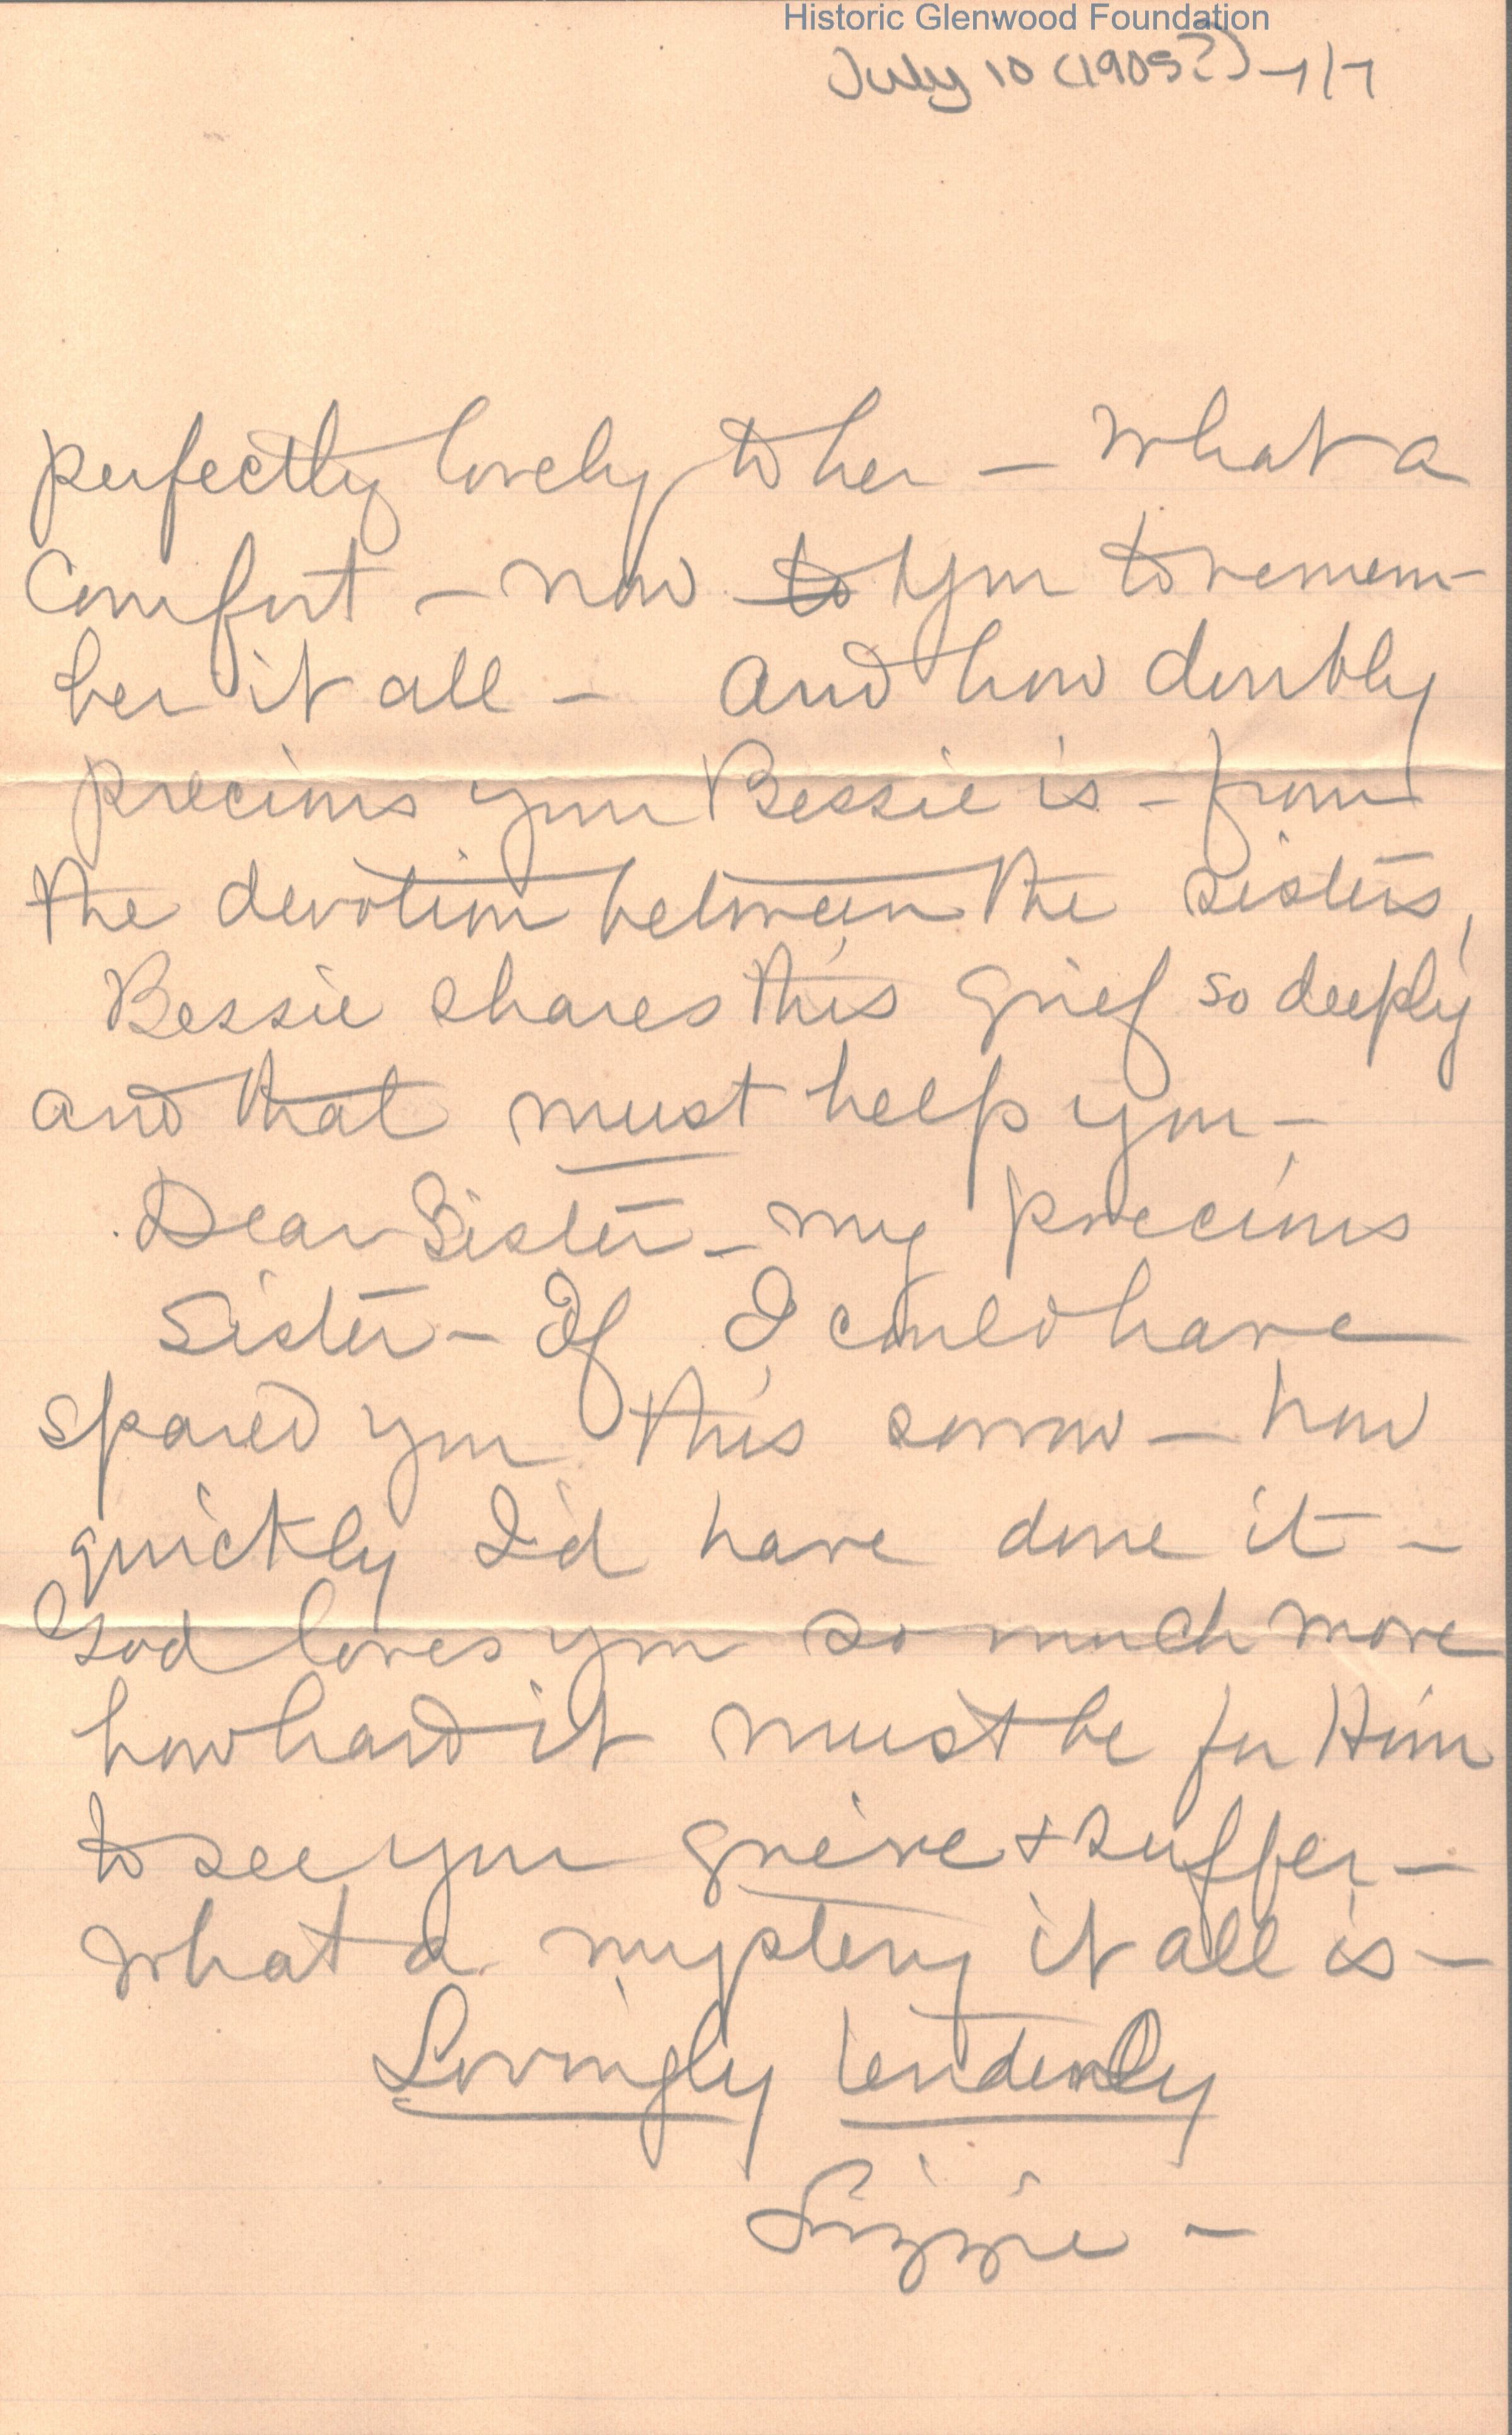 Historic Glenwood Foundation
July 10 (1905?) - 7/7
perfectly lovely to her - What a
comfort - now to you to remem-
ber it all - And how doubly
precious your Bessie is - from
the devotion between the sisters,
Bessie shares this grief so deeply
and that must help you -
Dear Sister - my precious
Sister - If I could have
spared you this sorrow - how
quickly I'd have done it -
God loves you so much more
how hard it must be for Him
to see you grieve & suffer -
What a mystery it all is -
Lovingly tenderly
Lizzie -